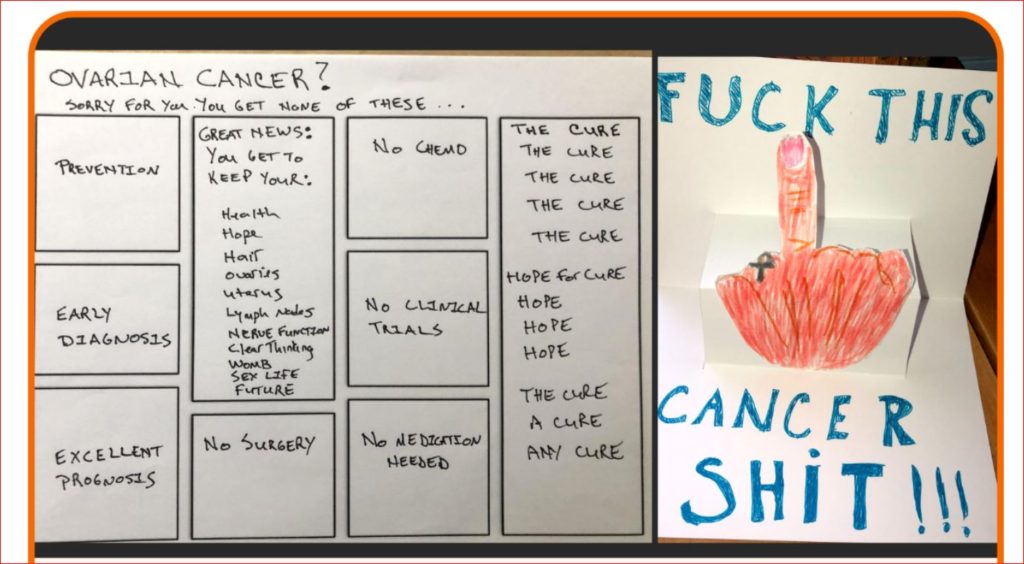 OVARIAN CANCER?
SORRY FOR YOU. YOU GET NONE OF THESE ...
PREVENTION
EARLY
DIAGNOSIS
EXCELLENT
PROGNOSIS
GREAT NEWS:
YOU GET TO
KEEP YOUR:
Health
Hope
Hair
ovaries
uterus
Lymph Nodes
NERVE FUNCTION
Clear Thinking
WOMB
SEX LIFE
FUTURE
NO SURGERY
NO CHEMO
NO CLINICAL
TRIALS
NO MEDICATION
NEEDED
THE CURE
THE CURE
THE CURE
THE CURE
THE CURE
HOPE FOR CURE
HOPE
HOPE
HOPE
THE CURE
A CURE
ANY CURE
FUCK THIS
CANCER
SHIT!!!